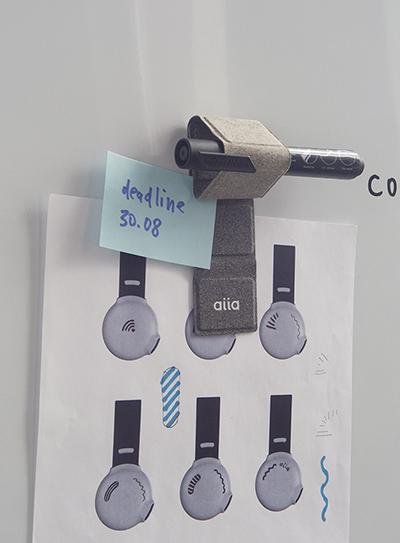 deadline
30.08
co
aiia
aiia